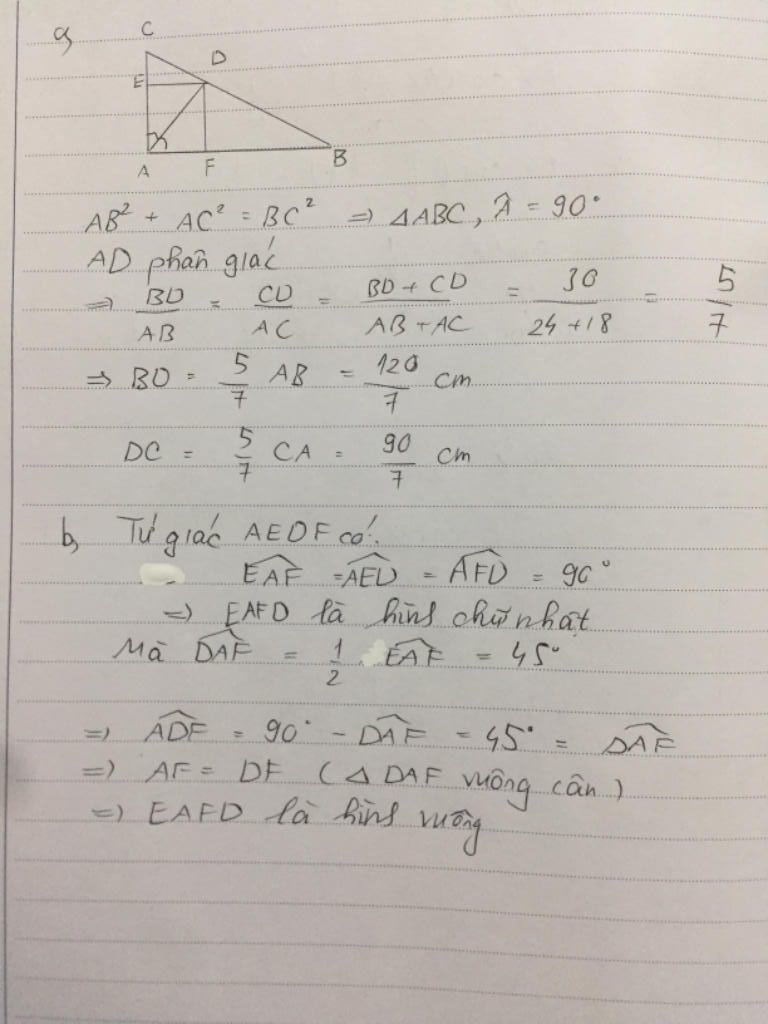 a,
C
D
E
A F B
AB² + AC² = BC² ⇒ ΔABC, Â = 90°
AD phân giác
⇒ BD/AB = CD/AC = (BD + CD)/(AB + AC) = 30/(24 + 18) = 5/7
⇒ BD = 5/7 AB = 120/7 cm
DC = 5/7 CA = 90/7 cm
b, Tứ giác AEDF có:
EAF = AED = AFD = 90°
=) EAFD là hình chữ nhật
Mà DAF = 1/2 EAF = 45°
=) ADF = 90° - DAF = 45° = DAF
=) AF = DF (Δ DAF vuông cân)
=) EAFD là hình vuông